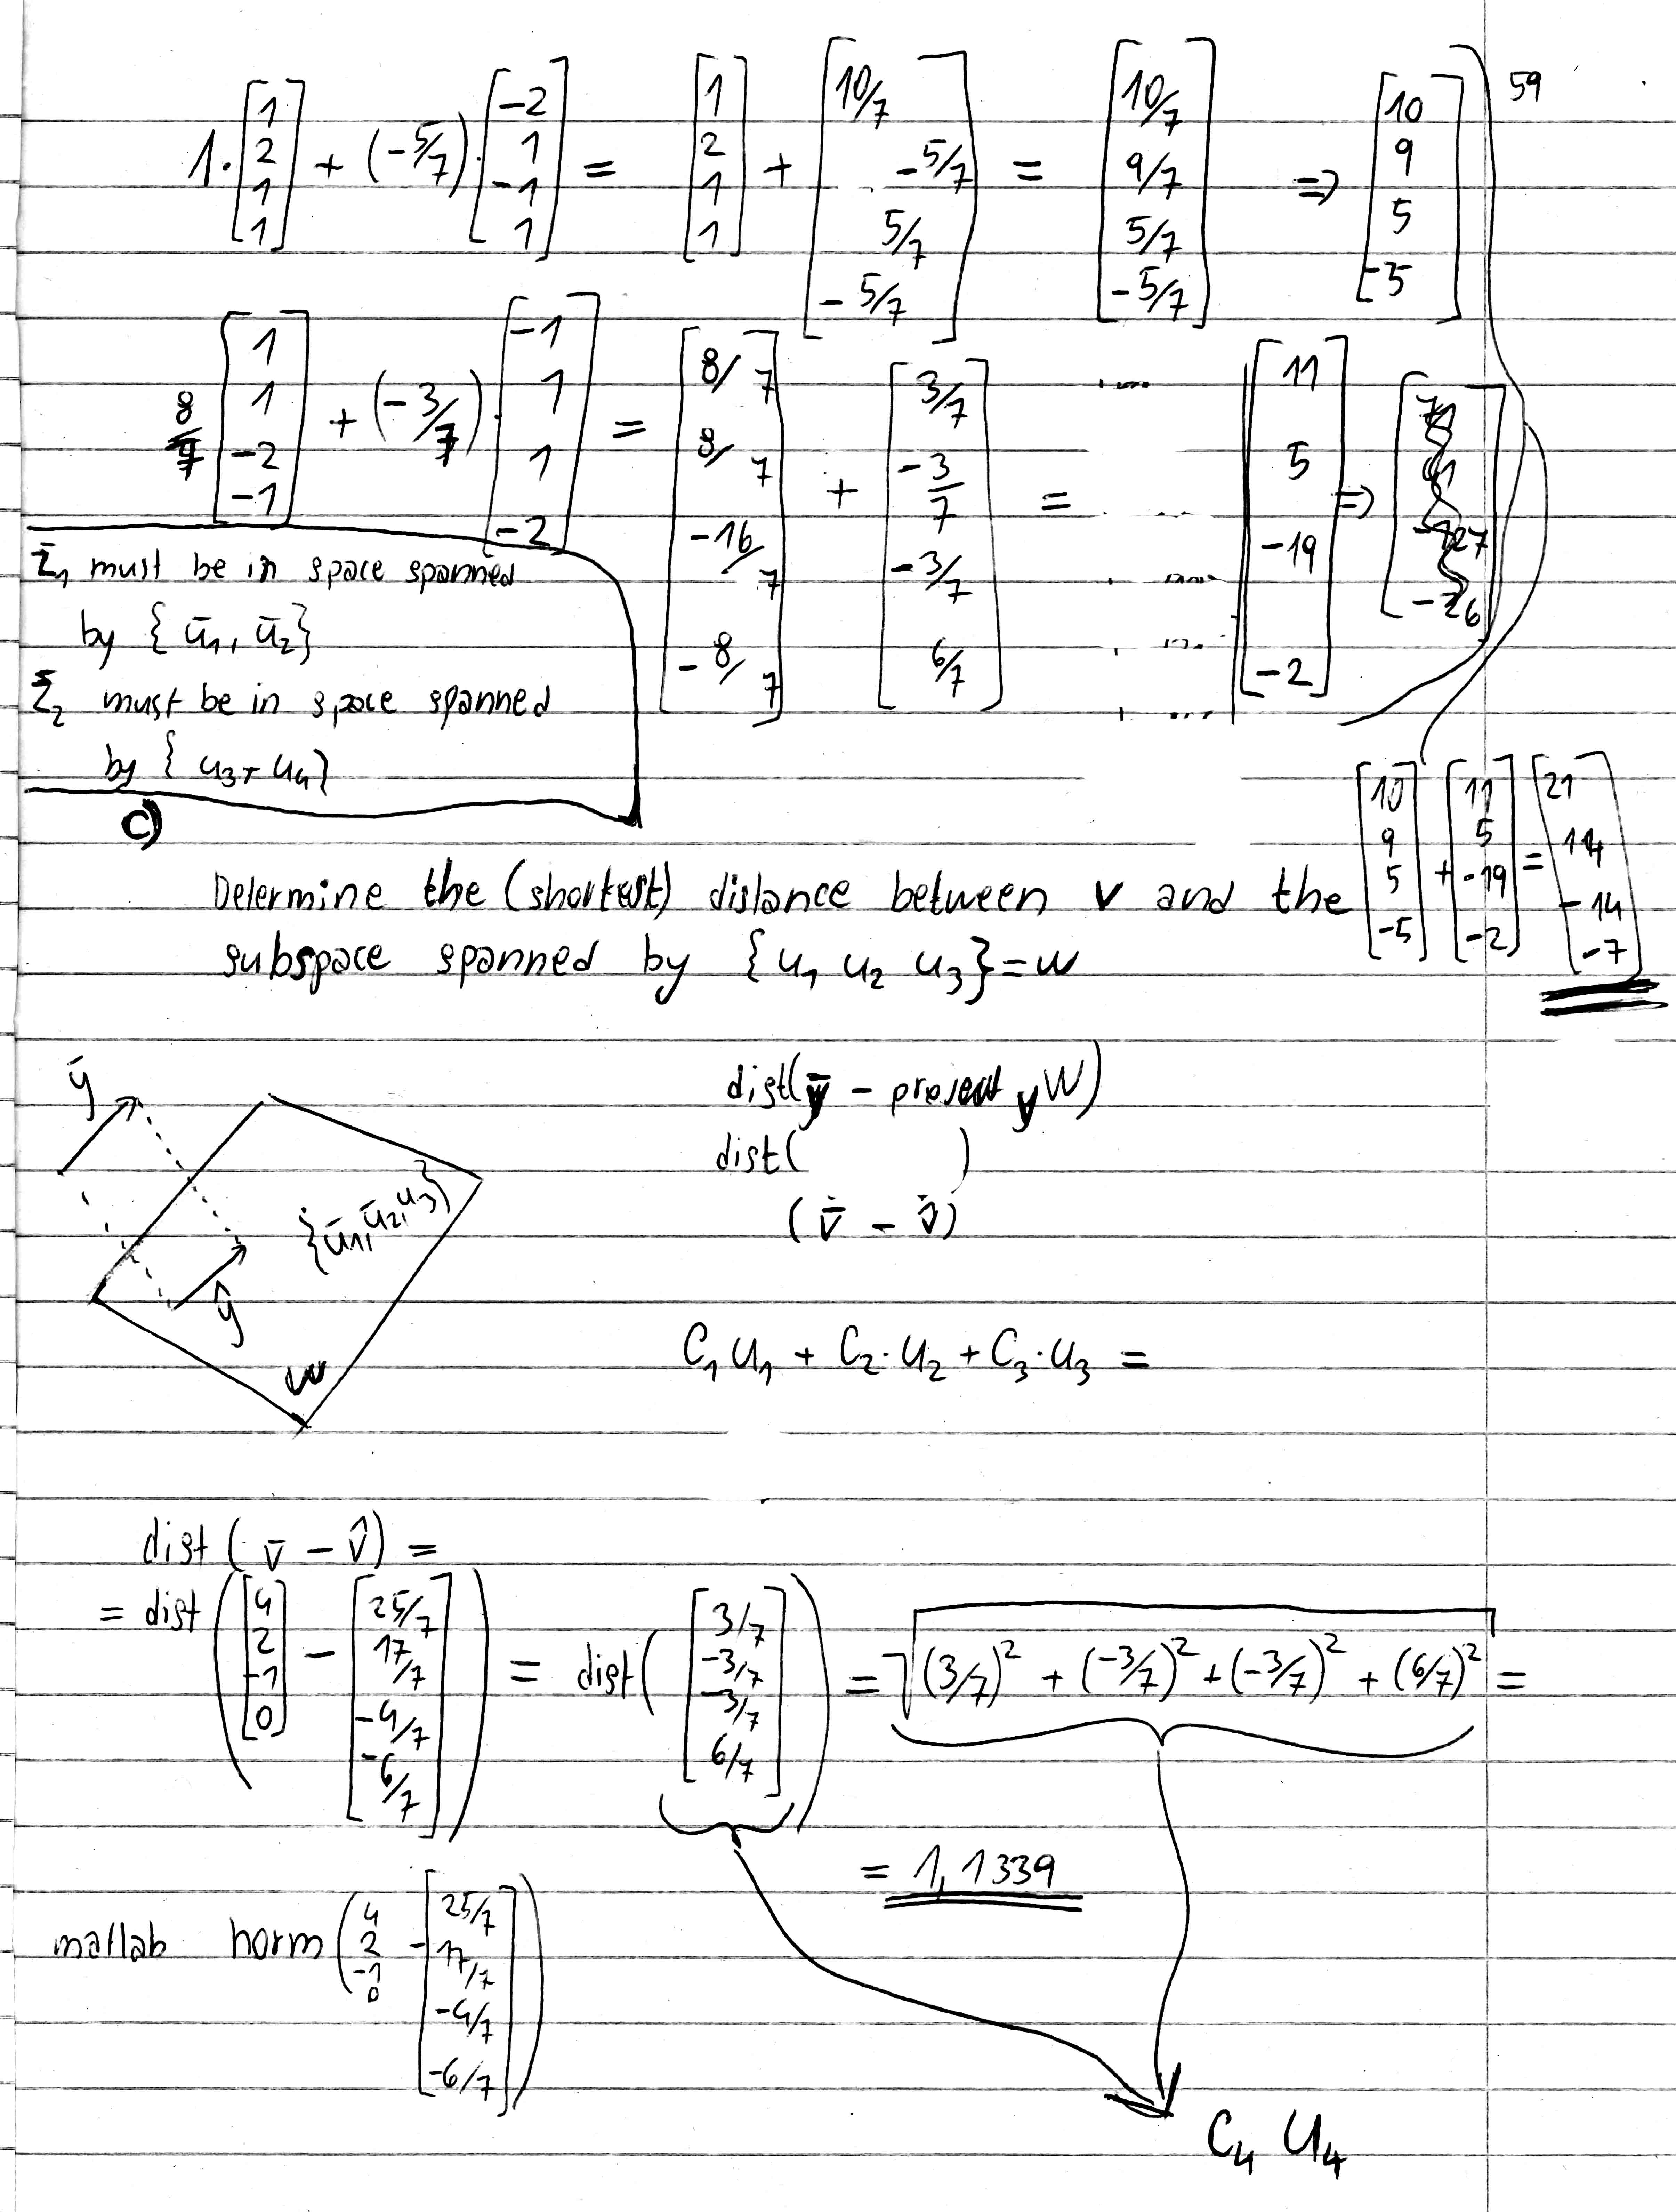 59
1 · [1 2 1 1] + (-5/7) · [-2 1 -1 1] = [1 2 1 1] + [10/7 -5/7 5/7 -5/7] = [10/7 9/7 5/7 -5/7] => [10 9 5 -5]
8/7 [1 1 -2 -1] + (-3/7) · [-1 1 1 -2] = [8/7 8/7 -16/7 -8/7] + [3/7 -3/7 -3/7 6/7] = [11 5 -19 -2] =>
z̄1 must be in space spanned
by { ū1, ū2}
z̄2 must be in space spanned
by { u3, u4}
[10 9 5 -5] + [11 5 -19 -2] = [21 14 -14 -7]
c)
Determine the (shortest) distance between v and the
subspace spanned by {u1 u2 u3} = w
ȳ
{ū1, ū2, u3}
ŷ
w
dist(ȳ - yW)
dist( )
(v̄ - v̂)
C1 u1 + C2 · u2 + C3 · u3 =
dist ( v̄ - v̂) =
= dist ([4 2 -1 0] - [25/7 17/7 -4/7 -6/7]) = dist ([3/7 -3/7 -3/7 6/7]) = √(3/7)² + (-3/7)² + (-3/7)² + (6/7)² =
= 1,1339
matlab norm (4 2 -1 0 - [25/7 17/7 -4/7 -6/7])
C4 U4